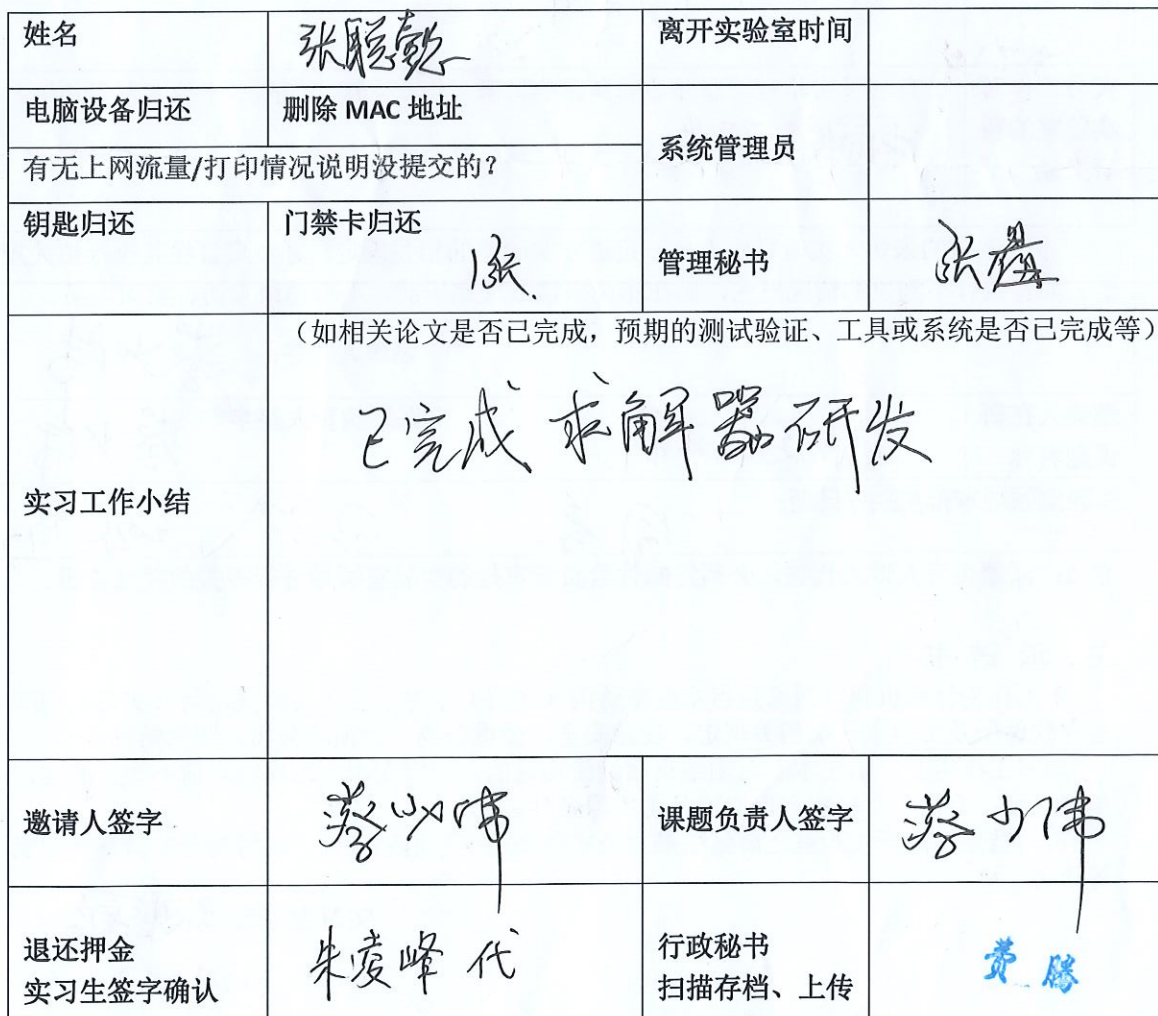 姓名 张聪懿 离开实验室时间
电脑设备归还 删除 MAC 地址 系统管理员
有无上网流量/打印情况说明没提交的?
钥匙归还 门禁卡归还 管理秘书
1张
实习工作小结
(如相关论文是否已完成,预期的测试验证、工具或系统是否已完成等)
已完成 求解器研发
邀请人签字 蔡少伟 课题负责人签字 蔡少伟
退还押金 朱凌峰 代 行政秘书 费腾
实习生签字确认 扫描存档、上传